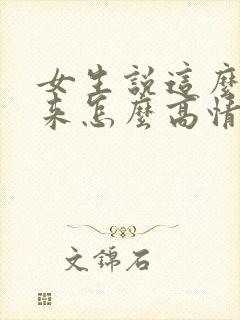 女生說這麼
來怎麼高情
文錦石